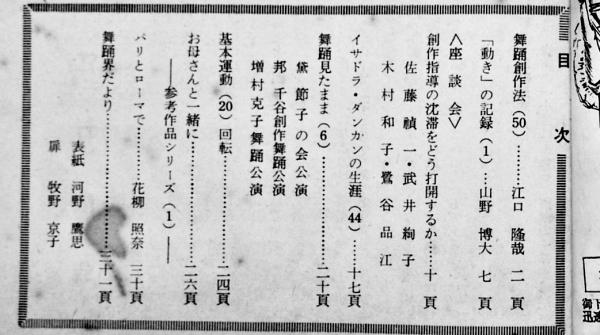 目次
舞踊創作法（50）……江口隆哉 二頁
「動き」の記録（1）…山野博大 七頁
＜座談会＞
創作指導の沈滞をどう打開するか……十頁
佐藤禎一・武井絢子
木村和子・鷺谷品江
イサドラ・ダンカンの生涯（44）……十七頁
舞踊見たまま（6）……二十頁
黛節子の会公演
邦千谷創作舞踊公演
増村克子舞踊公演
基本運動（20）回転……二四頁
お母さんと一緒に……二六頁
――参考作品シリーズ（1）――
パリとローマで……花柳照奈 三十頁
舞踊界だより……三十一頁
表紙 河野鷹思
扉 牧野京子